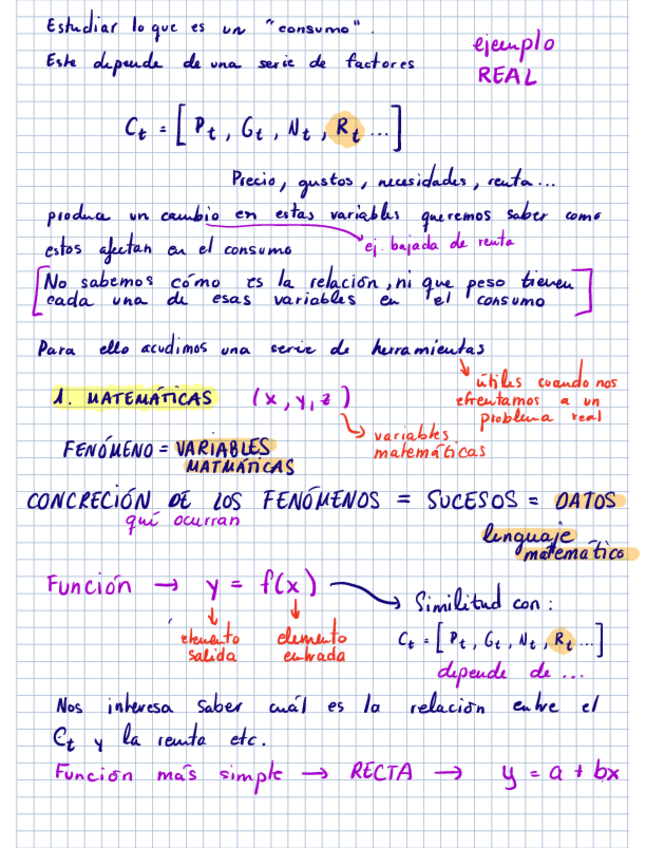 Estudiar lo que es un "consumo".
Este depende de una serie de factores
ejemplo
REAL
Ct = [ Pt , Gt , Nt , Rt ... ]
Precio, gustos, necesidades, renta...
produce un cambio en estas variables queremos saber como
estos afectan en el consumo
ej. bajada de renta
[No sabemos cómo es la relación, ni que peso tienen
cada una de esas variables en el consumo]
Para ello acudimos una serie de herramientas
útiles cuando nos
efrentamos a un
problema real
1. MATEMÁTICAS (x, y, z)
variables
matemáticas
FENÓMENO = VARIABLES
MATMÁTICAS
CONCRECIÓN DE LOS FENÓMENOS = SUCESOS = DATOS
qué ocurran
lenguaje
matemático
Función → y = f(x)
elemento
salida
elemento
entrada
Similitud con:
Ct = [ Pt , Gt , Nt , Rt ... ]
depende de ...
Nos interesa saber cuál es la relación entre el
Ct y la renta etc.
Función más simple → RECTA → y = a + bx